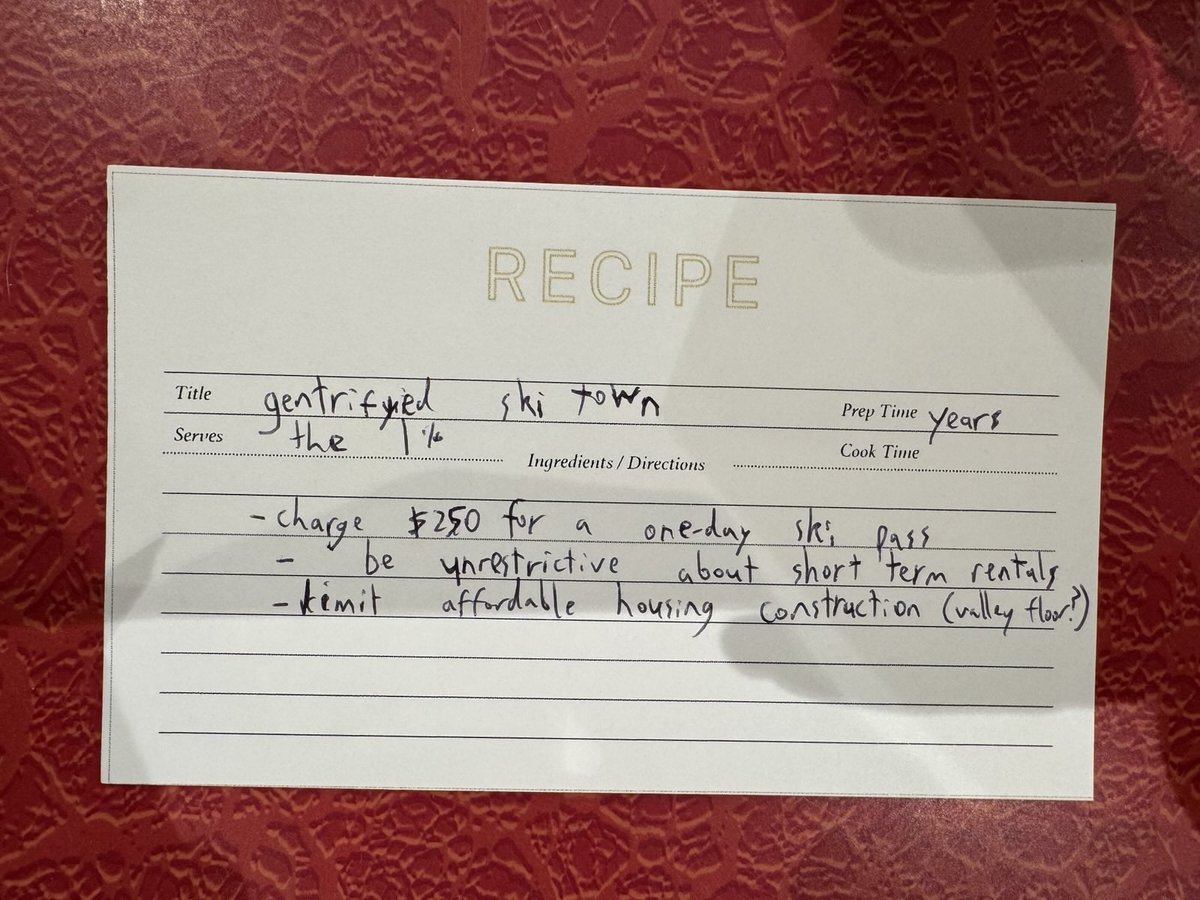 RECIPE
Title gentrified ski town Prep Time years
Serves the 1% Cook Time
Ingredients / Directions
- charge $250 for a one-day ski pass
- be unrestrictive about short term rentals
- limit affordable housing construction (valley floor?)